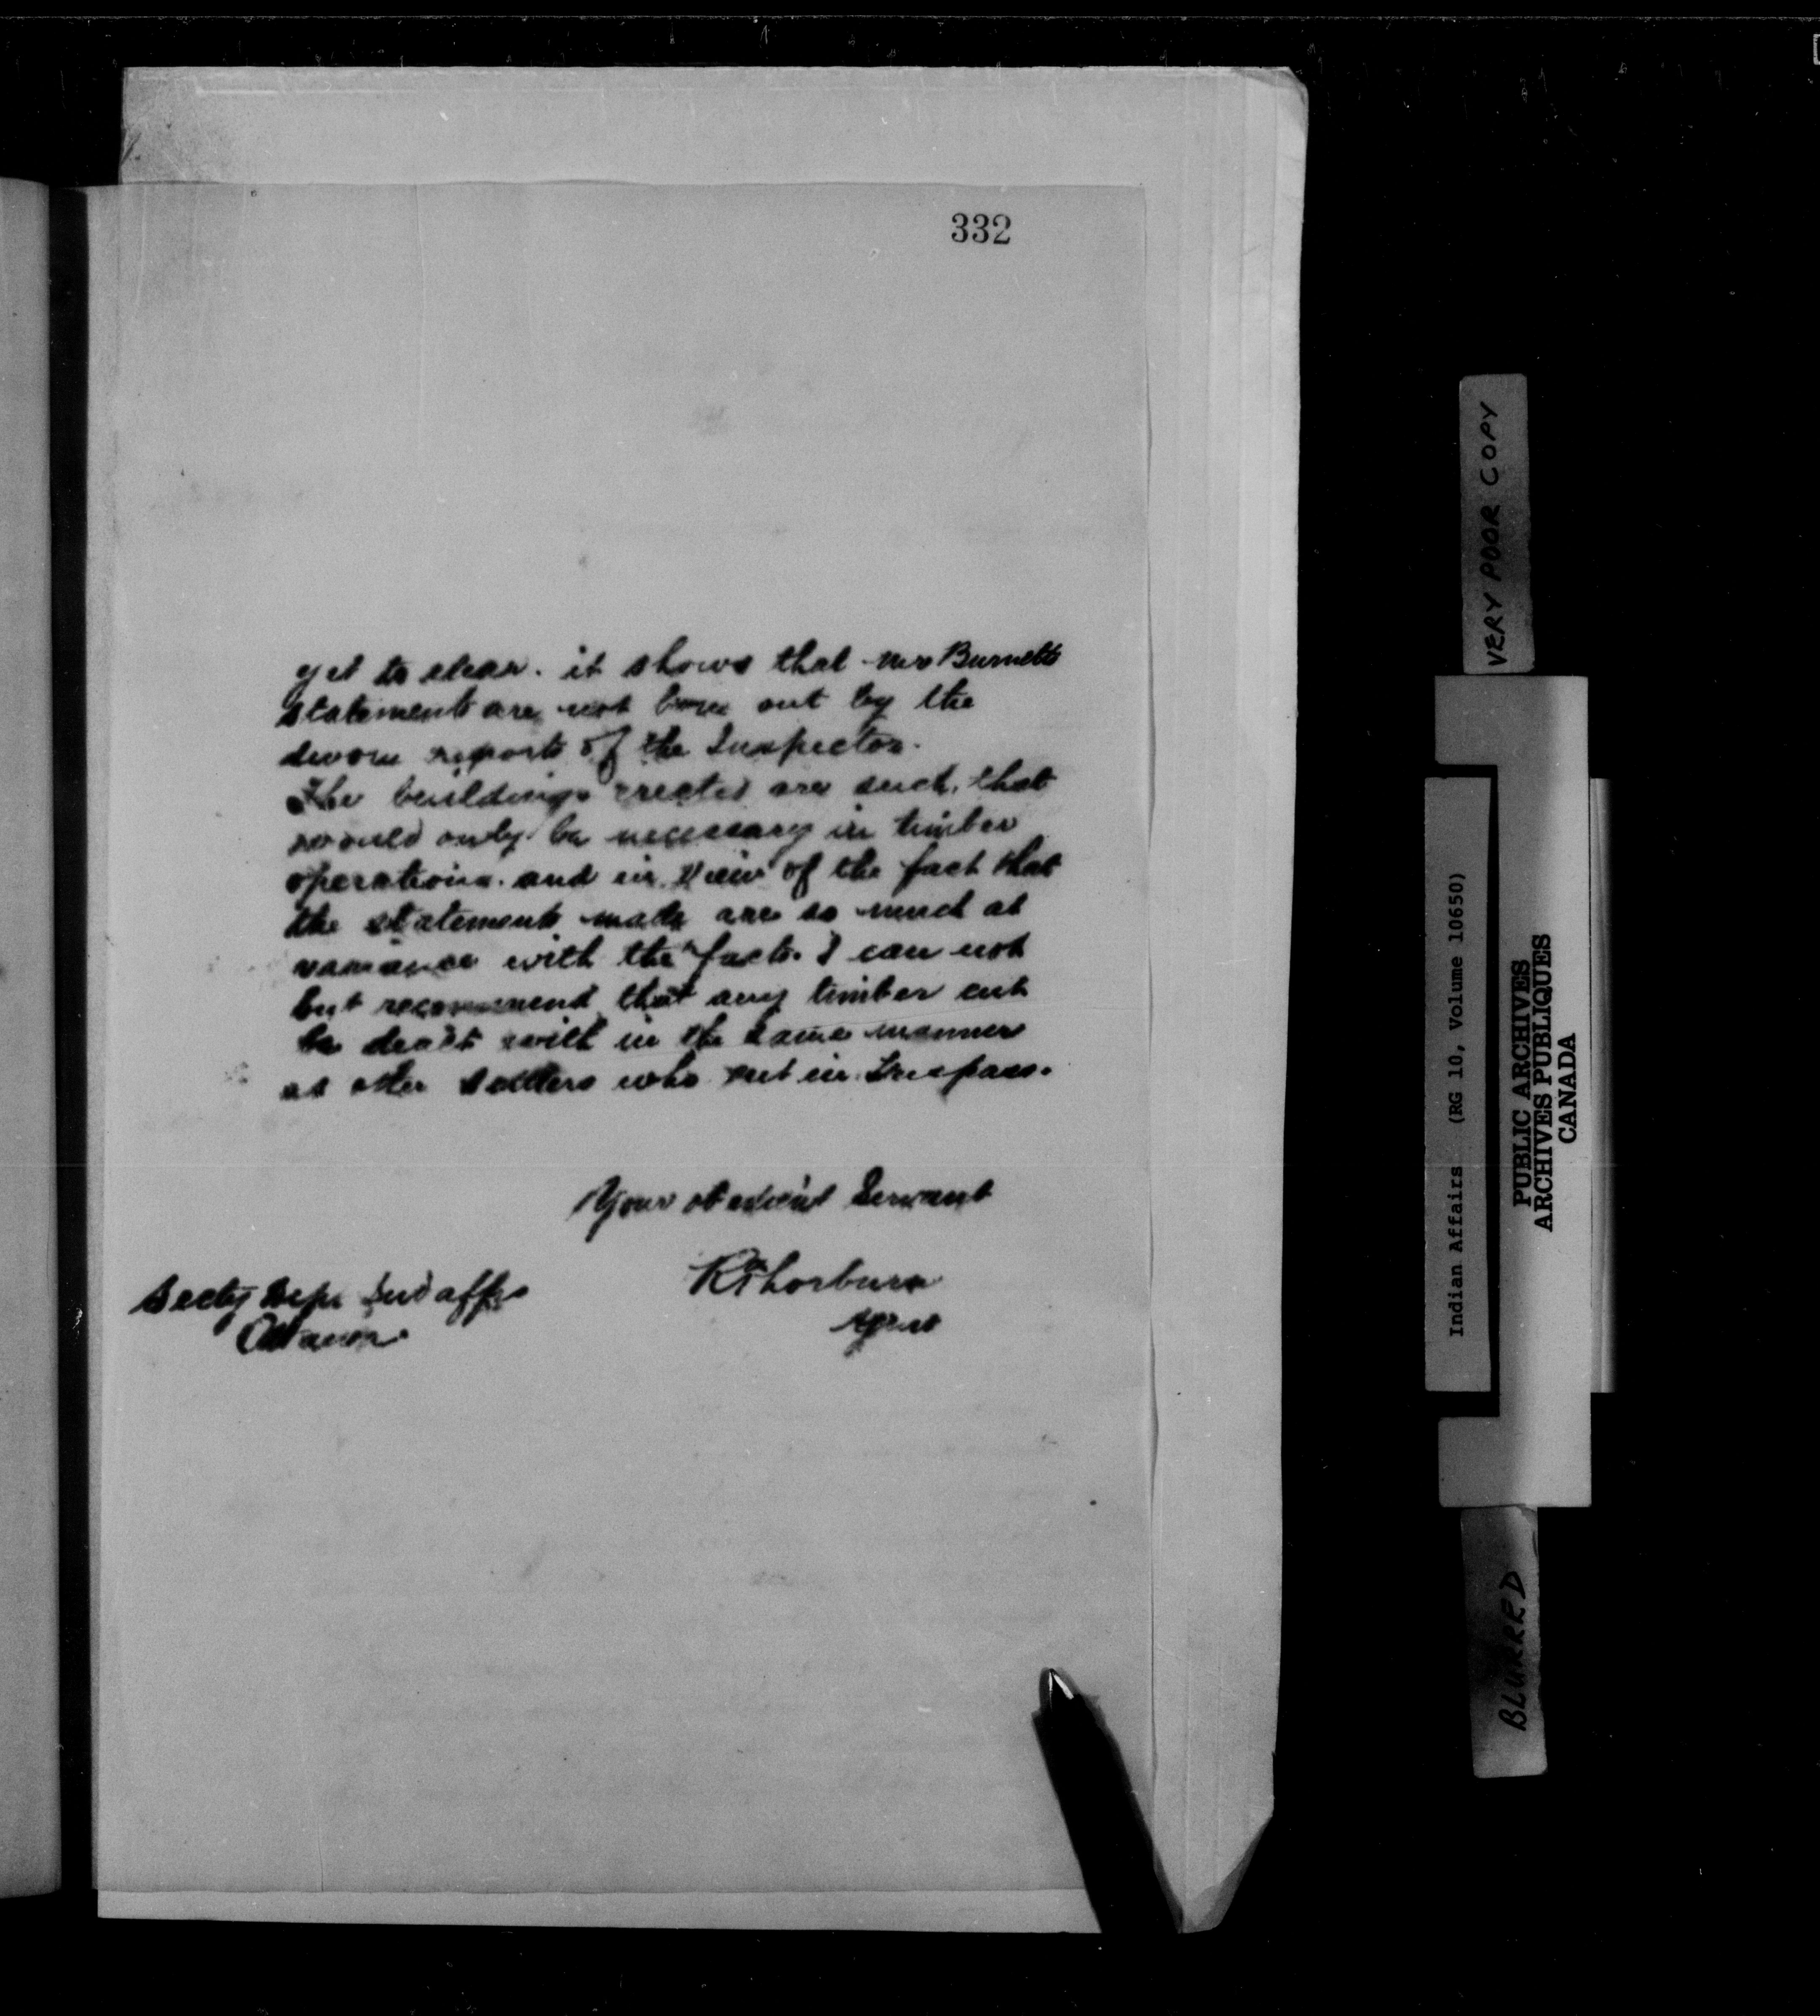 332
yet to clear. it shows that Mrs Burnetts
statements are not borne out by the
sworn reports of the Inspector.
The buildings erected are such, that
would only be necessary in timber
operations. and in view of the fact that
the statements made are so much at
variance with the facts. I can not
but recommend that any timber cut
be dealt with in the same manner
as other settlers who cut in trespass.
Your obedient Servant
Thorburn
Agent
Secty Dept Ind affrs
Ottawa.
VERY POOR COPY
Indian Affairs (RG 10, Volume 10650)
PUBLIC ARCHIVES
ARCHIVES PUBLIQUES
CANADA
BLURRED